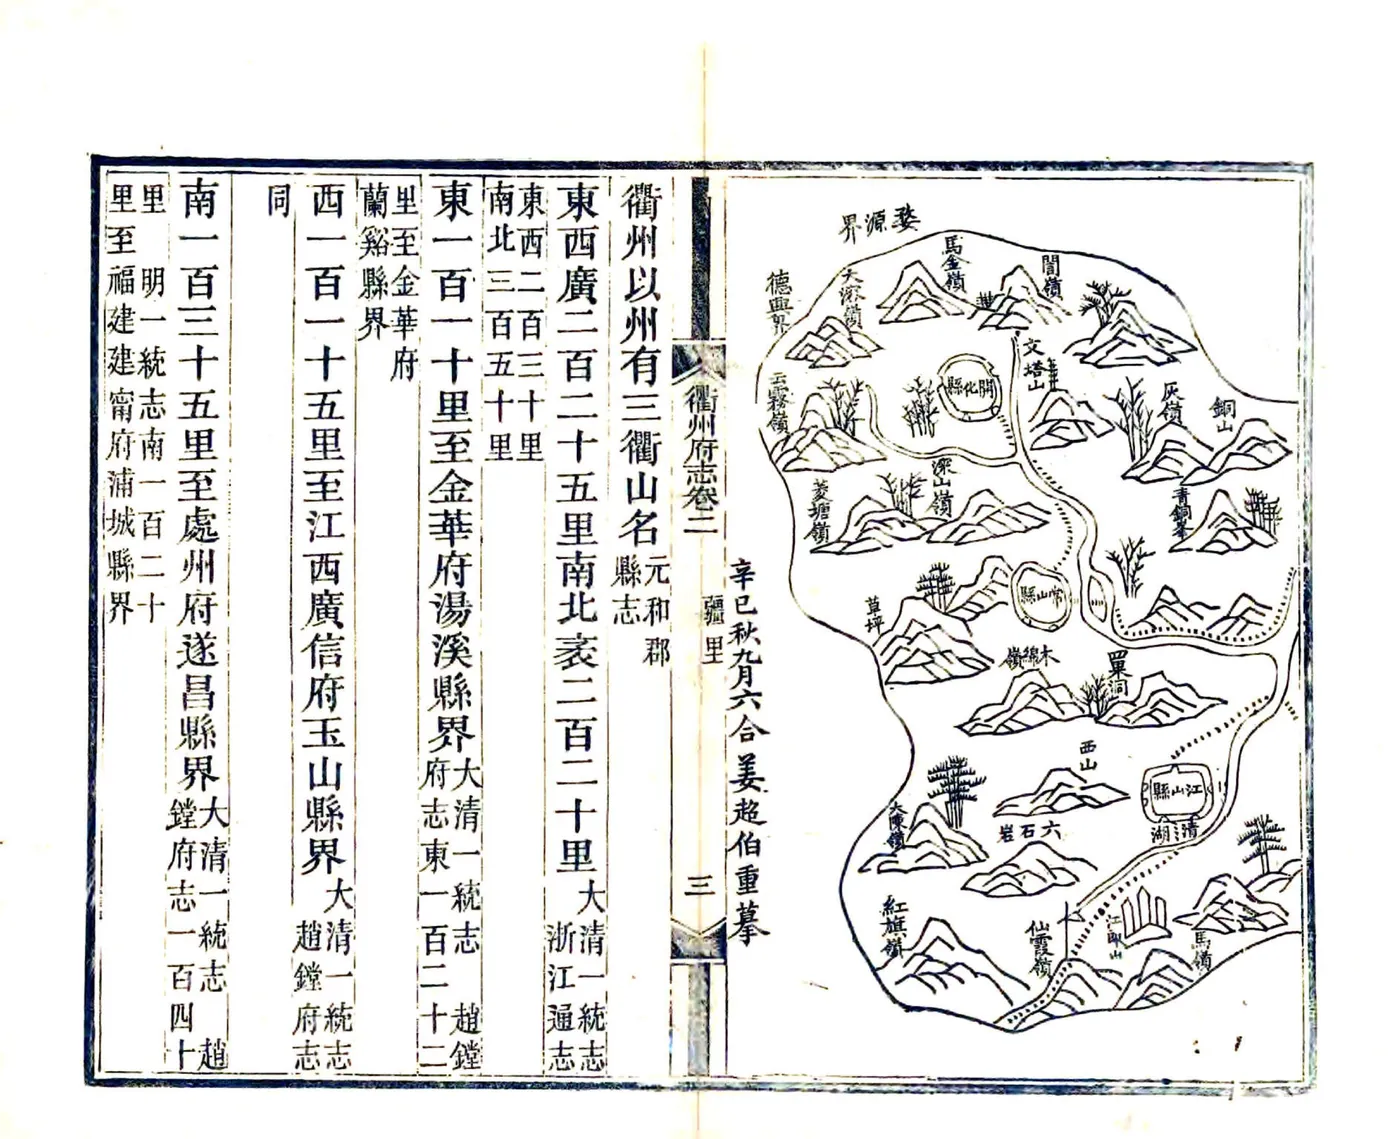 婺源界
德興界
大溶嶺
馬金嶺
閶嶺
雲霧嶺
開化縣
文塔山
灰嶺
銅山
菱塘嶺
深山嶺
青銅峯
草坪
常山縣
木綿嶺
單洞
西山
江山縣
清湖
大陳嶺
六石岩
紅旗嶺
仙霞嶺
江郎山
馬嶺
辛巳秋九月六合姜超伯重摹
衢州府志卷二
疆里
三
衢州以州有三衢山名元和郡
縣志
東西廣二百二十五里南北袤二百二十里大清一統志
浙江通志
東西二百三十里
南北三百五十里
東一百一十里至金華府湯溪縣界大清一統志 趙鏜
府志東一百二十二
里至金華府
蘭谿縣界
西一百一十五里至江西廣信府玉山縣界大清一統志
趙鏜府志
同
南一百三十五里至處州府遂昌縣界大清一統志 趙
鏜府志一百四十
里 明一統志南一百二十
里至福建建甯府浦城縣界